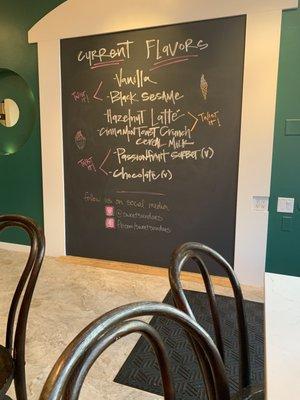 Current Flavors
Vanilla
Twist it!
Black Sesame
Hazelnut Latte
Twist it!
Cinnamon Toast Crunch
Cereal Milk
Passionfruit Sorbet (v)
Twist it!
Chocolate (v)
follow us on social media